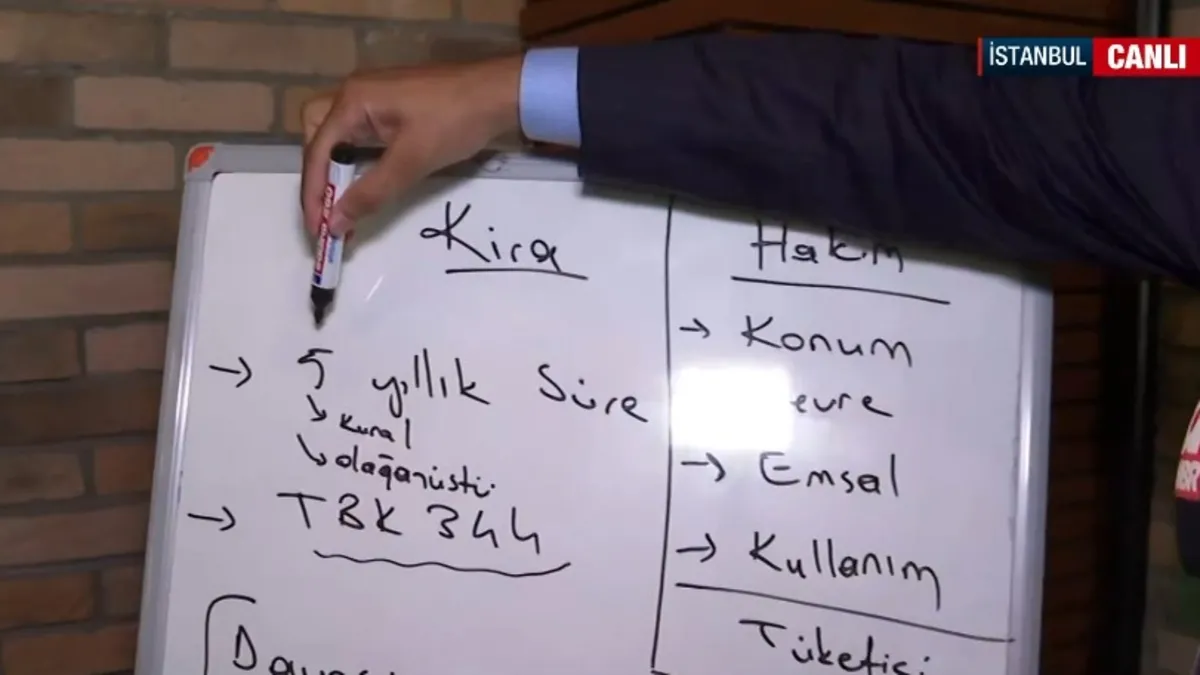 İSTANBUL CANLI
Kira
→ 5 yıllık Süre
↘ Kural
↘ olağanüstü
→ TBK 344
Hakim
→ Konum
evre
→ Emsal
→ Kullanım
Tüketici